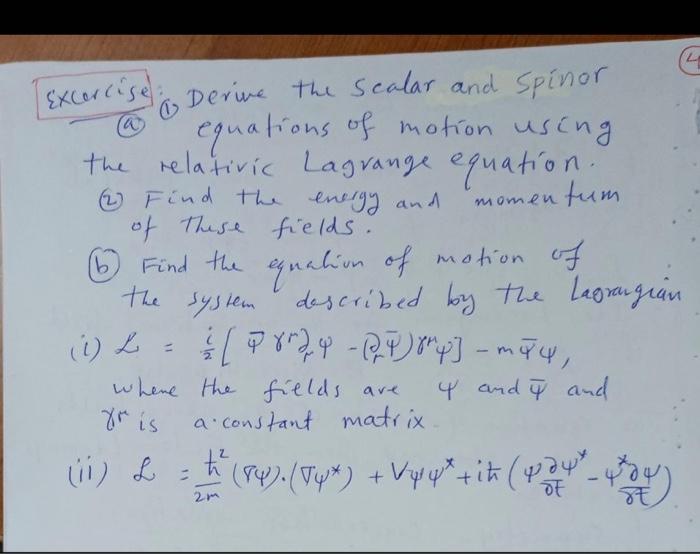 (4
Excercise: (1) Derive the scalar and spinor
(a) equations of motion using
the relativic Lagrange equation.
(2) Find the energy and momentum
of these fields.
(b) Find the equation of motion of
the system described by the Laorangian
(i) L = i/2 [ψ̄ γ^μ ∂_μ ψ - (∂_μ ψ̄) γ^μ ψ] - m ψ̄ ψ,
where the fields are ψ and ψ̄ and
γ^μ is a constant matrix.
(ii) L = ħ²/2m (∇ψ).(∇ψ*) + Vψψ* + iħ (ψ ∂ψ*/∂t - ψ* ∂ψ/∂t)